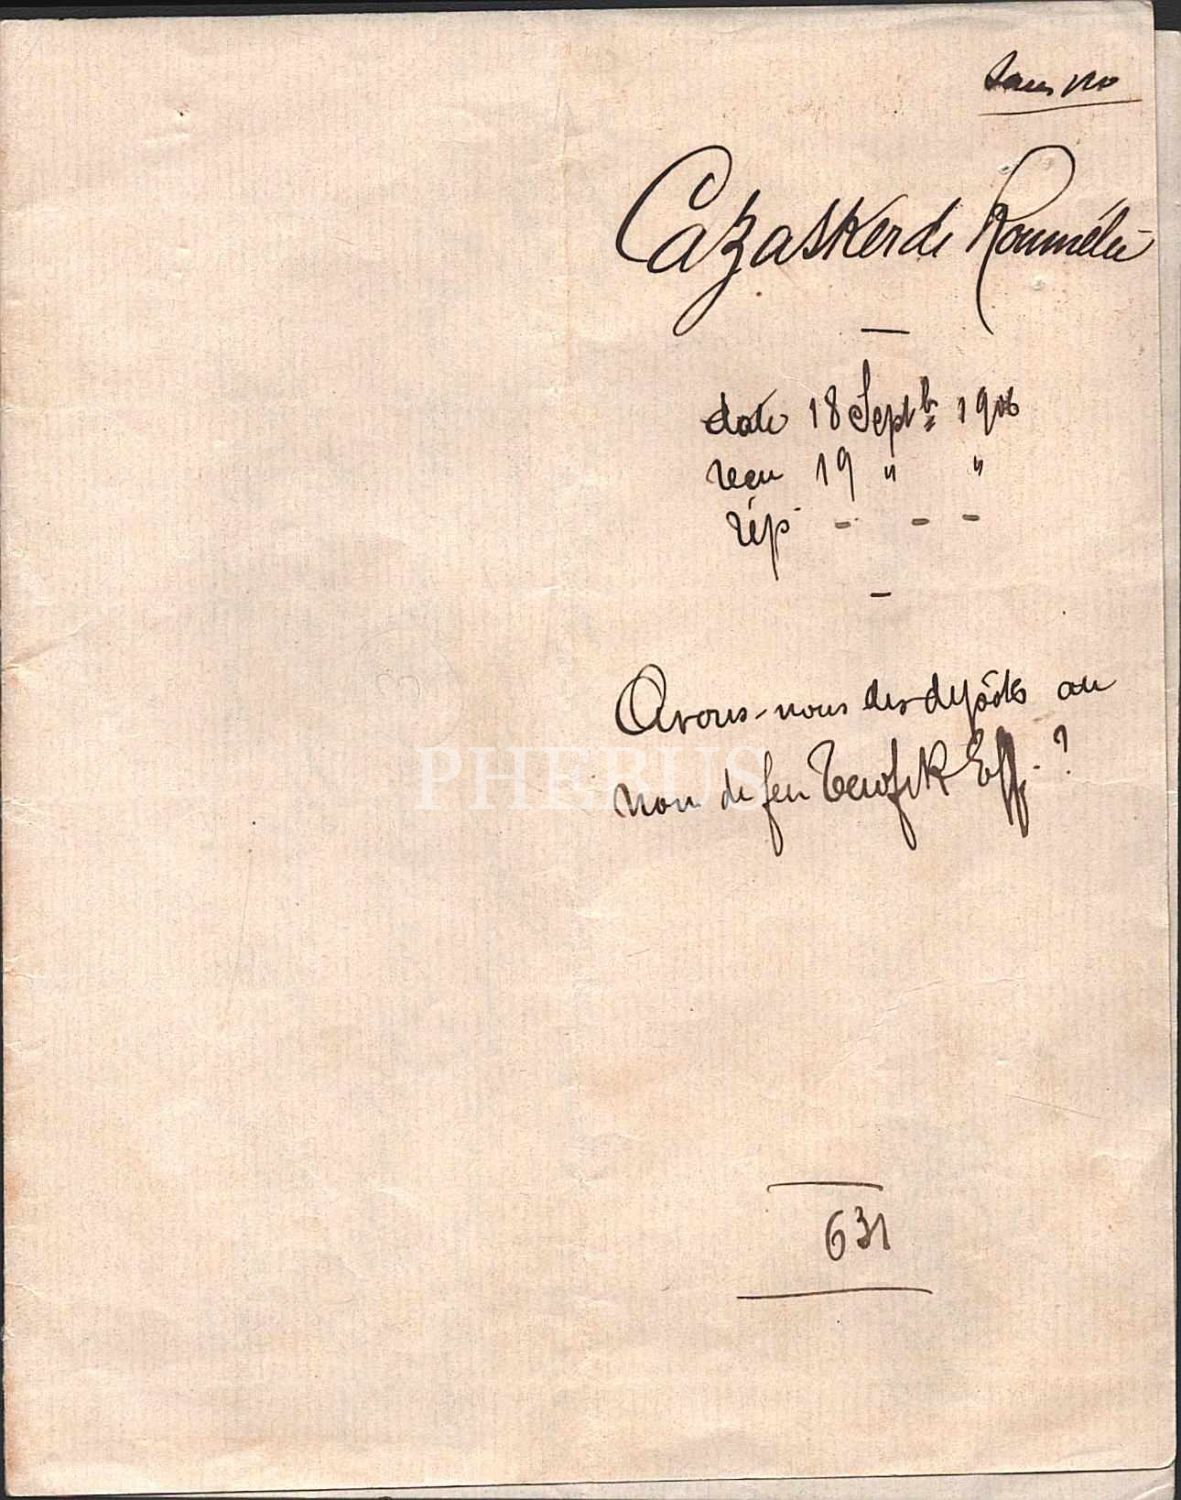 Sans no
Cazasker de Roumélie
date 18 Septbre 1906
recu 19 " "
rép. - - -
Avons-nous des dépôts au
nom de feu Tewfik Eff. ?
PHEBUS
631